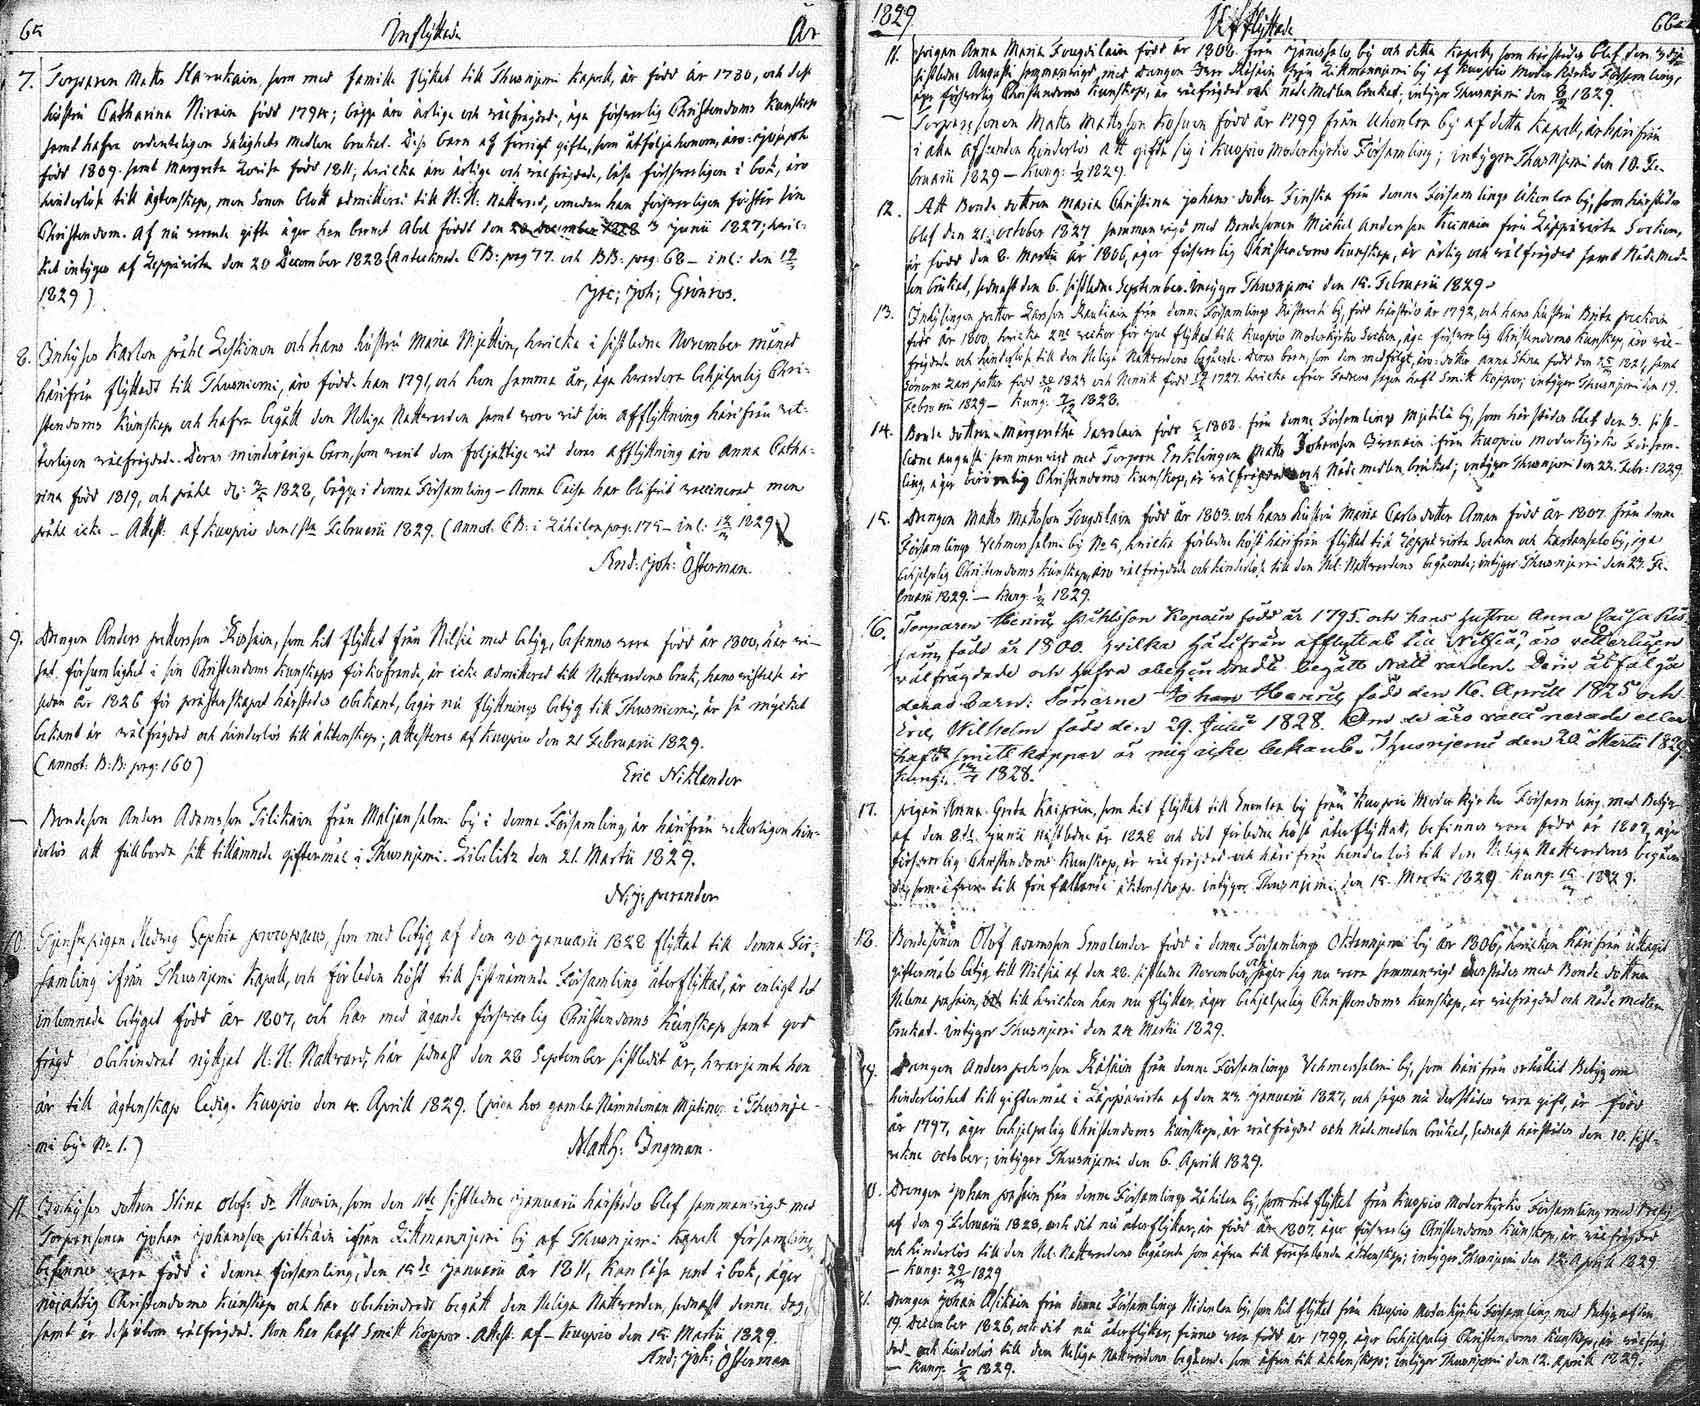 65
Inflyttade
År
7. Torparen Matts Harukain, som med familie flyttat till Thusnjemi Kapell, är född år 1780, och dess
hustru Catharina Mirain född 1794; bägge äro ärlige och välfrägdade, äga försvarlig Christendoms Kunskap
samt hafva ordenteligen Salighets medlen brukat. Dess barn af förrigt gifte, som åtfölja honom, äro:
född 1809. samt Margreta Lovisa född 1811; hvilka äro ärlige och välfrägdade, läsa försvarligen i bok, äro
hinderlöse till ägtenskap, men sonen blott admitteras till H. H. Nattvard, emedan han försvarligen förstår sin
Christendom. Af nu varande gifte äger han barnet Abel född den 3 Junii 1827; hvil-
ket intygas af Leppävirta den 20 December 1828 (antecknade CB: pag 77. och BB: pag: 68 - inl: den
1829)
Joh; Grönros.
8. Inhyses Karlen Påhl Leskinen och hans hustru Maria Mjettin, hvilka i sistledne November månad
härifrån flyttadt till Thusniemi, äro födde han 1791, och hon samma år, äga hvardera behjelpelig Chri-
stendoms Kunskap och hafva begått den Heliga Nattvarden samt voro vid sin afflyttning härifrån vet-
terligen välfrägdade. Deras minderåriga barn, som varit dem följaktige vid deras afflyttning äro Anna Catha-
rina född 1819, och Påhl d: 1828, bägge i denna Församling - Anna Caisa har blifvit vaccinerad men
Påhl icke - Attest: af Kuopio den 1sta Februarii 1829. (annot. CB: i Lähilen pag: 175 - inl: 1829)
And: Joh: Österman.
9. Drengen Anders Pettersson Rissain, som hit flyttat från Nilsiä med betyg, befinnes vara född år 1800, har vi-
sat försumlighet i sin Christendoms Kunskaps förkofrande, är icke admitterad till Nattvardens bruk, hans vistelse är
sedan år 1826 för prästerskapet härstädes obekant, begär nu flyttnings betyg till Thusniemi, är så mycket
bekant är välfrägdad och hinderlös till äktenskap; attesteras af Kuopio den 21 Februarii 1829.
(annot: B:B: pag: 160)
Eric Niklander
— Bondeson Anders Adamsson Tilikain från Maljansalmi by i denna Församling, är härifrån vetterligen hin-
derlös att fullborda sitt tillämnade giftermål i Thusnjemi. Libelitz den 21. Martii 1829.
N: J: Perander
10. Tjenstepigan Hedvig Sophia Procopæus, som med betyg af den 30 Januarii 1828 flyttat till denna För-
samling ifrån Thusnjemi Kapell, och förleden höst till sistnämnde Församling återflyttat, är enligt det
inlemnade betyget född år 1807, och har med ägande försvarlig Christendoms Kunskap samt god
frägd obehindrat nyttjat H. H. Nattvard, här sednast den 28 September sistledit år, hvarjemte hon
är till ägtenskap ledig. Kuopio den 4. Aprill 1829. (piga hos gamla Nämndeman Mjetinen i Thusnje-
mi by No 1.)
Matth: Ingman.
11. Inhyses dottren Stina Olofs dr Huorin, som den 11te sistledne Januarii härstädes blef sammanvigd med
Torparesonen Johan Johansson Pitkäin ifrån Littmannjemi by af Thusnjemi Kapell församling,
befinnes vara född i denna församling, den 15de Januarii år 1811, kan läsa rent i bok, äger
nöjaktig Christendoms Kunskap och har obehindradt begått den Heliga Nattvarden, sednast denne dag,
samt är dessutom välfrägdad. Hon har haft Smitt Koppor. Attest. af - Kuopio den 15. Martii 1829.
And: Joh; Österman
1829
Utflyttade
66
11. Pigan Anna Maria Fougdilain född år 1806. från Jänissalo by och detta Kapell, som härstädes blef den
sistledne Augusti sammanvigd, med Drengen Räsäin från Littmannjemi by af Kuopio Moder Kyrko Församling,
äger försvarlig Christendoms Kunskap, är välfrägdad och nådemedlen brukat; intygar Thusnjemi den 8/2 1829.
— Torparesonen Matts Mattsson Kosuen född år 1799 från Ukonlen by af detta Kapell, är härifrån
i akta afseenden hinderlös att gifta sig i Kuopio moderkyrko Församling; intygar Thusnjemi den 10. Fe-
bruarii 1829 — Kung: 1/2 1829.
12. Att Bonde dottren Maria Christina Johans dotter Finska från denna Församlings Ukonlen by, som härstädes
blef den 21. october 1827 sammanvigd med Bondesonen Michel Andersson Keinäin från Leppävirta Socken,
är född den 8. Martii år 1806, äger försvarlig Christendoms Kunskap, är ärlig och välfrägdad samt Nåde med-
len brukat, sednast den 6. sistledne September. intygar Thusnjemi den 15. Februarii 1829.
13. Inhysingen Petter Larsson Rautiain från denna Församlings by, född härstädes år 1792, och hans hustru Brita
född år 1800, hvilka 2ne veckor för jul flyttat till Kuopio Moderkyrko Socken, äga försvarlig Christendoms Kunskap, äro väl-
frägdade och hinderlöse till den Heliga Nattvardens begående. Deras barn, som dem medfölgt, äro: dotter Anna Stina född den 1821, samt
Sönerna Lars Petter född 1824 och Henrik född 1727. hvilka efter Fadrens sägen haft Smitt Koppor; intygar Thusnjemi den 19.
Februarii 1829 — Kung: 1828.
14. Bonde dottren Margaretha Savolain född 1808. från denna Församlings Mjetilä by, som härstädes blef den 3. sist-
ledne Augusti sammanvigd med Torpare Enklingen Matts Johansson från Kuopio moderkyrko Försam-
ling, äger Christendoms Kunskap, är välfrägdad och Nåde medlen brukat; intygar Thusnjemi den 22. Febr: 1829.
15. Drengen Matts Matsson Fougdilain född år 1803. och hans hustru Maria Carls dotter Aman född år 1807. från denna
Församlings Vehmersalmi by No 5, hvilka förledne höst härifrån flyttat till Leppävirta Socken och by, äga
behjelpelig Christendoms Kunskap, äro välfrägdade och hinderlöse till den Hel: Nattvardens begående; intygar Thusnjemi den 23. Fe-
bruarii 1829. — Kung: 1/2 1829.
16. Torparen Henric Påhlsson Kopain född år 1795. och hans hustru Anna Caisa
född år 1800. hvilka härifrån afflyttat till Nilsiä, äro vetterligen
välfrägdade och hafva begått Nattvarden. Dem åtfölga
deras barn: Sönerne Johan Henric född den 16. Aprill 1825 och
Eric Wilhelm född den 29. Julii 1828. Om de äro vaccinerade eller
haft smittkoppor är mig icke bekant. Thusnjemi den 20. Martii 1829.
Kung: 1828.
17. Pigan Anna Greta Kaipain, som hit flyttat till Enonlen by från Kuopio Moder Kyrko Församling med Betyg
af den 8de Junii nästledne år 1828 och dit förledne höst återflyttat, befinnes vara född år 1807, äger
försvarlig Christendoms Kunskap, är välfrägdad och härifrån hinderlös till den Heliga Nattvardens begåen-
de, som äfven till förefallande äktenskap. intygar Thusnjemi den 15. Martii 1829 Kung: 1829.
18. Bondesonen Olof Adamsson Smolander född i denna Församlings Oktansjemi by år 1806, hvilken härifrån uttagit
giftermåls betyg till Nilsiä af den 28. sistledne November, säger sig nu vara sammanvigd derstädes med Bonde dottren
Helena Pasain, till hvilken han nu flyttar, äger behjelpelig Christendoms Kunskap, är välfrägdad och nåde medlen
brukat. intygar Thusnjemi den 24 Martii 1829.
19. Drengen Anders Pehrsson Räsäin från denna Församlings Vehmersalmi by, som härifrån erhållit Betyg om
hinderlöshet till giftermål i Leppävirta af den 23. Januarii 1827, och säges nu derstädes vara gift, är född
år 1797, äger behjelpelig Christendoms Kunskap, är välfrägdad och Nåde medlen brukat, sednast härstädes den 10. sist-
vekne October; intygar Thusnjemi den 6. Aprill 1829.
0. Drengen Johan Pasain från denna Församlings Lähilen by, som hit flyttat från Kuopio Moderkyrko Församling med Betyg
af den 9 Februarii 1828, och dit nu återflyttar, är född år 1807. äger försvarlig Christendoms Kunskap, är välfrägdad
och hinderlös till den Hel: Nattvardens begående som äfven till förefallande äktenskap; intygar Thusnjemi den 12 Aprill 1829
— Kung: 1829
Drengen Johan Asikain från denna Församlings by, som hit flyttat från Kuopio Moderkyrko Församling med Betyg af den
19. December 1826, och dit nu återflyttar, finnes vara född år 1799, äger behjelpelig Christendoms Kunskap, är välfräg-
dad och hinderlös till den Heliga Nattvardens begående som äfven till äktenskap; intygar Thusnjemi den 12. Aprill 1829.
— Kung: 1/2 1829.